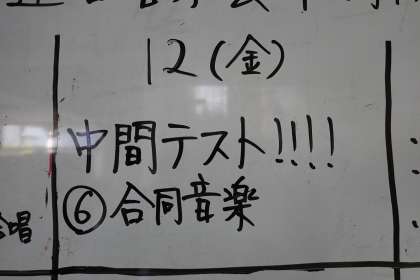 12(金)
中間テスト!!!!
⑥合同音楽
唱